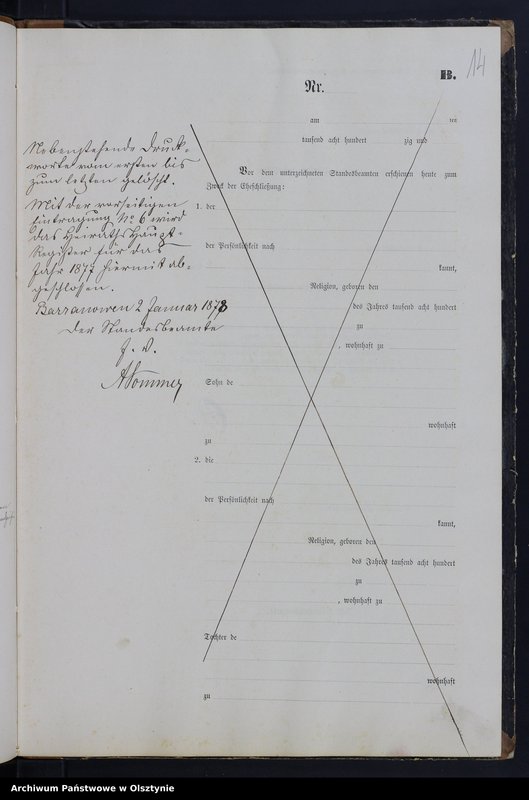 14
B.
Nr.
am ten
tausend acht hundert zig und
Vor dem unterzeichneten Standesbeamten erschienen heute zum
Zweck der Eheschließung:
1. der
der Persönlichkeit nach
kannt,
Religion, geboren den
des Jahres tausend acht hundert
zu
, wohnhaft zu
Sohn de
wohnhaft
zu
2. die
der Persönlichkeit nach
kannt,
Religion, geboren den
des Jahres tausend acht hundert
zu
, wohnhaft zu
Tochter de
wohnhaft
zu
Nebenstehende Druck-
worte vom ersten bis
zum letzten gelöscht.
Mit der vorseitigen
Eintragung No 6 wird
das Heiraths Haupt-
Register für das
Jahr 1877 hiermit ab-
geschlossen.
Barranowen 2 Januar 1878
Der Standesbeamte
J. V.
ASommer
Archiwum Państwowe w Olsztynie